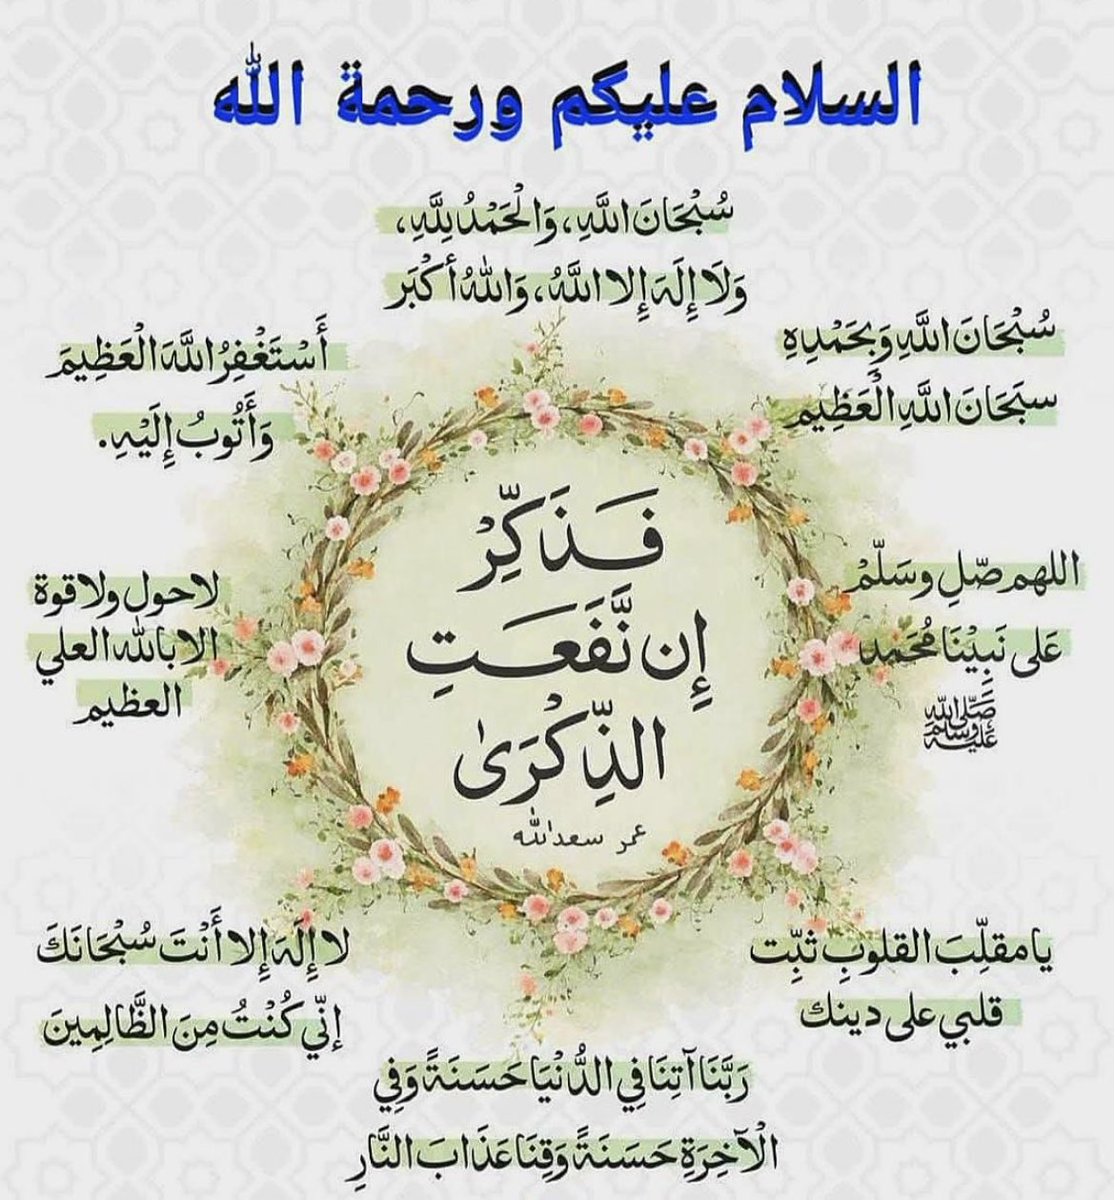 السلام عليكم ورحمة الله
سُبْحَانَ اللَّهِ، وَالْحَمْدُ لِلَّهِ،
وَلَا إِلَهَ إِلا اللَّهُ، وَاللهُ أَكْبَر
سُبْحَانَ اللَّهِ وَبِحَمْدِهِ
سبَحَانَ اللَّهِ الْعَظِيمِ
أَسْتَغْفِرُ اللَّهَ الْعَظِيمَ
وَأَتُوبُ إِلَيْهِ.
فَذَكِّرْ
إِن نَّفَعَتِ
الذِّكْرَىٰ
عمر سعدالله
اللهم صّلِ وسَلّمْ
على نَبِيْنَا مُحَمَد
صَلَّى اللَّهُ عَلَيْهِ وَسَلَّمَ
لا حول ولا قوة
الا بالله العلي
العظيم
يا مقلِّبَ القلوبِ ثبِّت
قلبي على دينك
لا إِلَهَ إِلا أَنْتَ سُبْحَانَكَ
إِنِّي كُنْتُ مِنَ الظَّالِمِينَ
رَبَّنَا آتِنَا فِي الدُّنْيَا حَسَنَةً وَفِي
الْآخِرَةِ حَسَنَةً وَقِنَا عَذَابَ النَّارِ